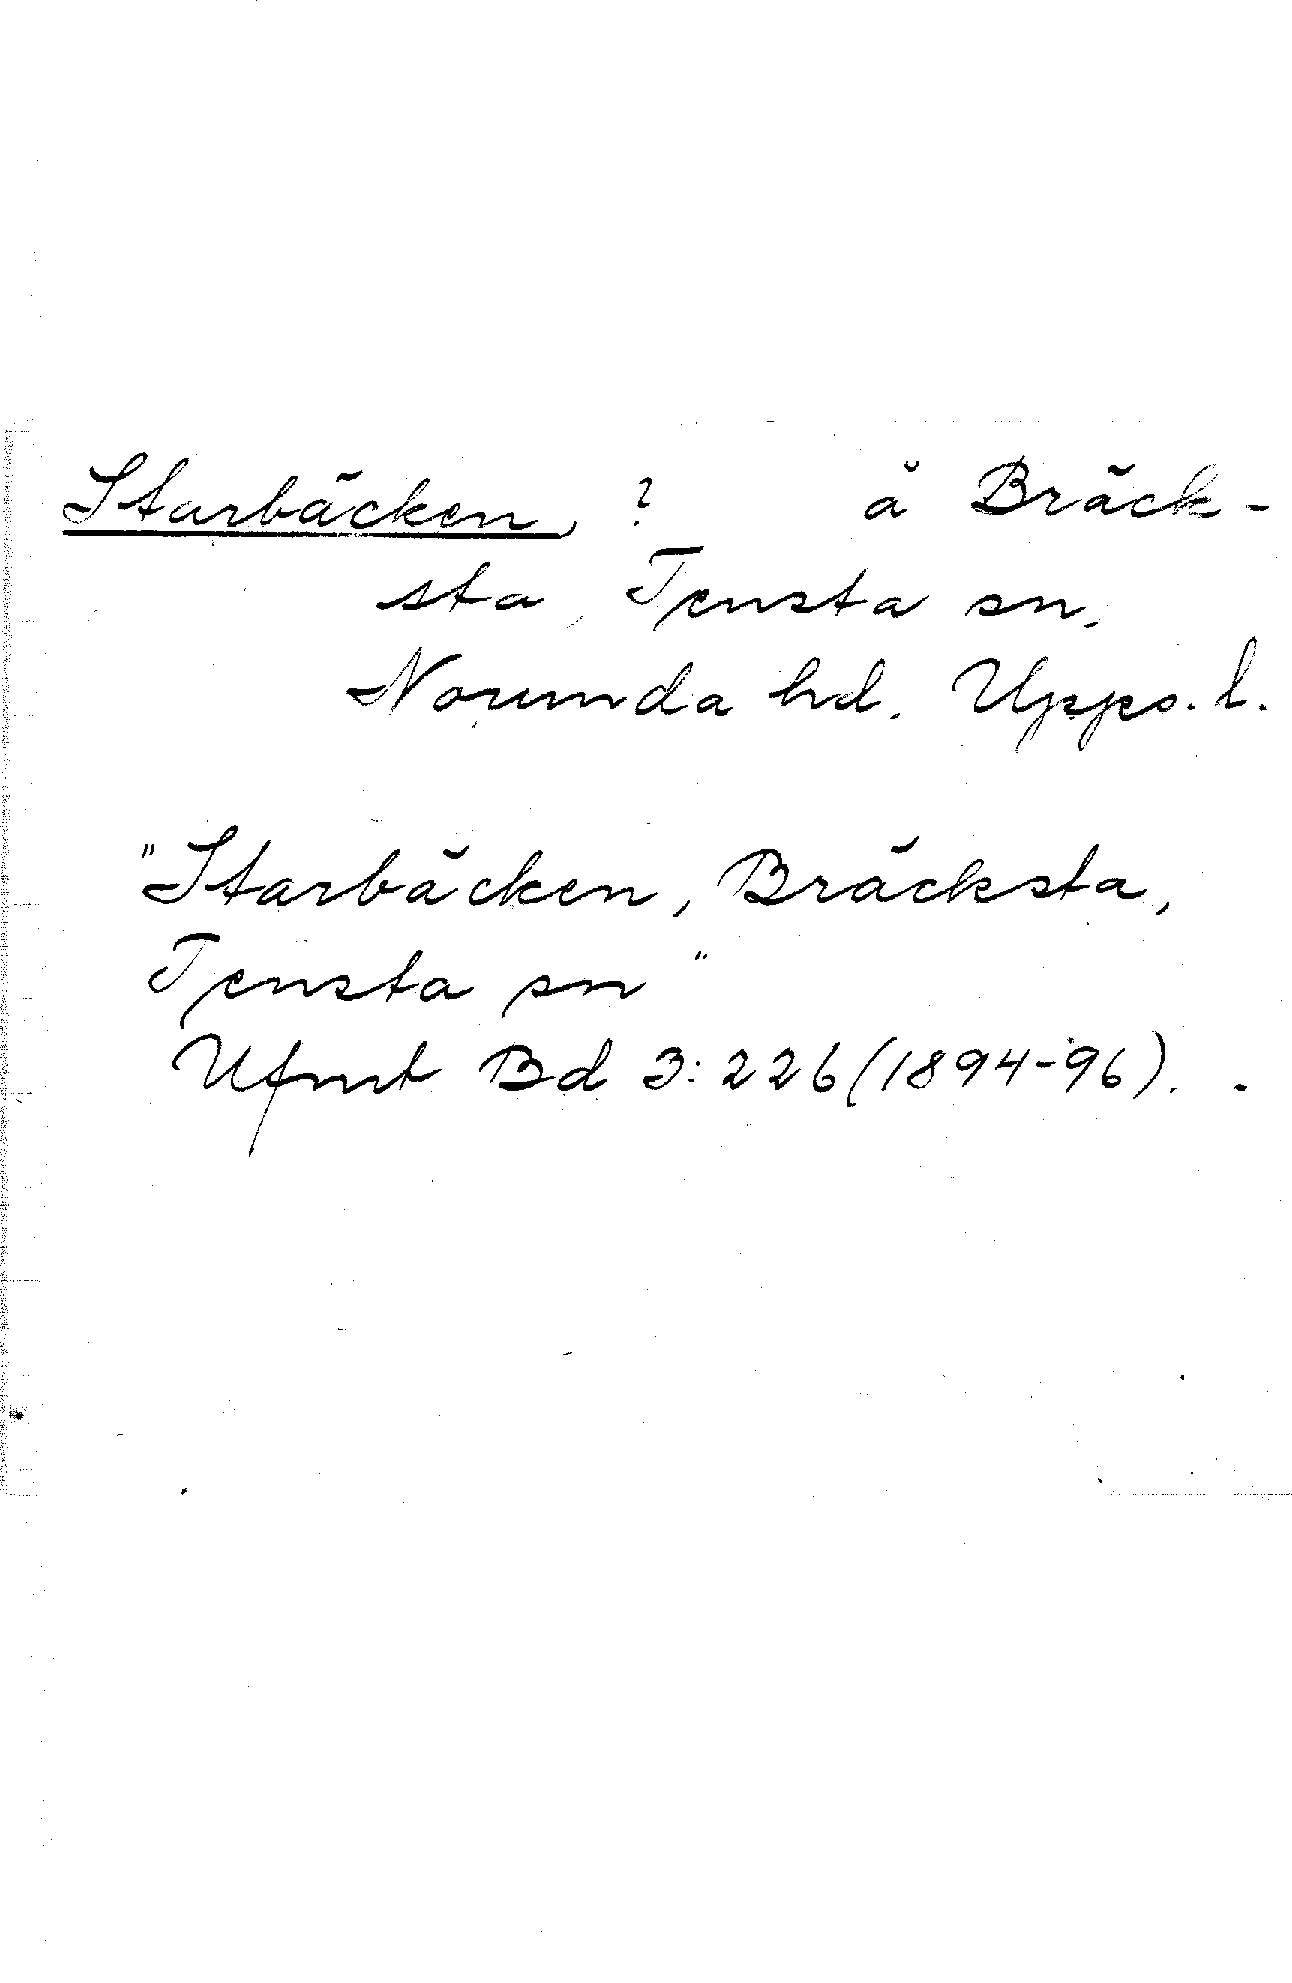 Starbäcken, ? å Bräck-
sta, Tensta sn.
Norunda hd. Upps. l.
"Starbäcken, Bräcksta,
Tensta sn"
Ufmt Bd 3:226 (1894-96).